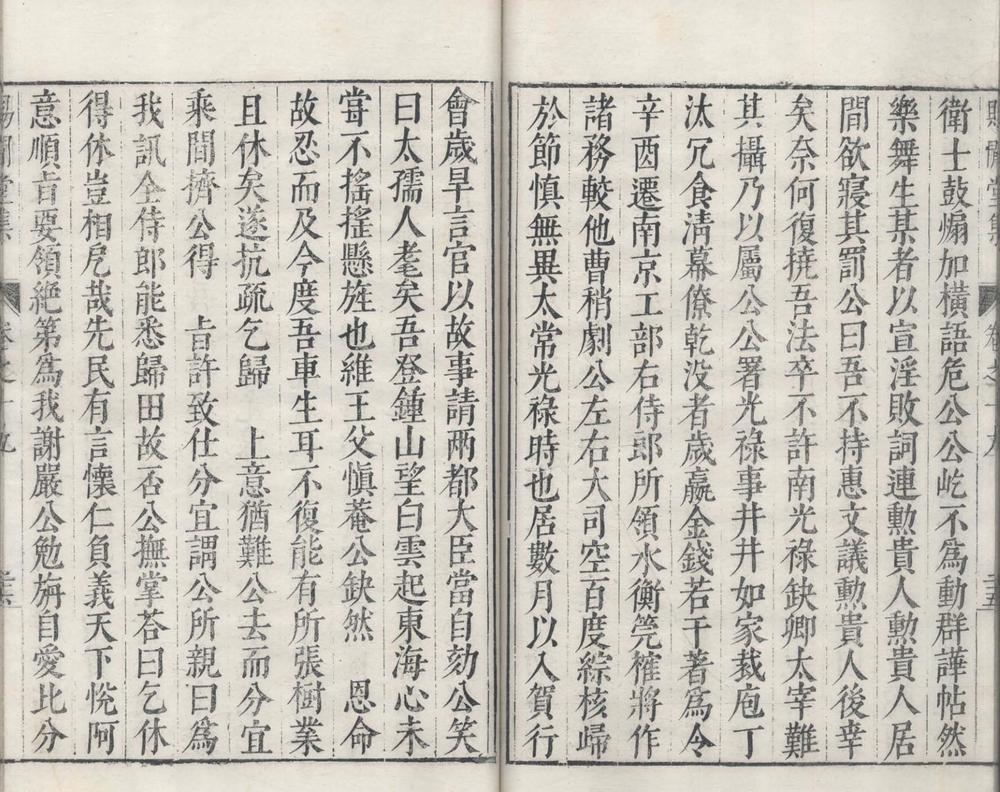 衛士鼓煽加橫語危公公屹不爲動群譁帖然
樂舞生某者以宣淫敗詞連勲貴人勲貴人居
間欲寢其罰公曰吾不持惠文議勲貴人後幸
矣奈何復撓吾法卒不許南光祿缺卿太宰難
其攝乃以屬公公署光祿事井井如家裁庖丁
汰冗食淸幕僚乾没者歲贏金錢若干著爲令
辛酉遷南京工部右侍郎所領水衡筦榷將作
諸務較他曹稍劇公左右大司空百度綜核歸
於節慎無異太常光祿時也居數月以入賀行
會歲旱言官以故事請兩都大臣當自効公笑
曰太孺人耄矣吾登鍾山望白雲起東海心未
嘗不搖搖懸旌也維王父愼菴公缺然　恩命
故忍而及今度吾車生耳不復能有所張樹業
且休矣遂抗疏乞歸　上意猶難公去而分宜
乘間擠公得　旨許致仕分宜謂公所親曰爲
我訊仝侍郎能悉歸田故否公撫掌荅曰乞休
得休豈相戹哉先民有言懷仁負義天下悅阿
意順旨要領絶第爲我謝嚴公勉旃自愛比分
賜閒堂集
卷之十九